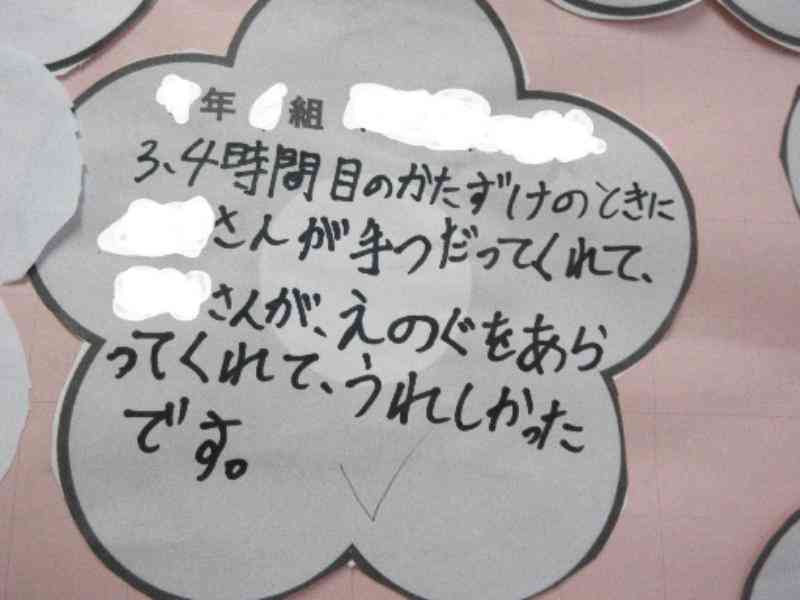 年 組
3、4時間目のかたずけのときに
さんが手つだってくれて、
さんが、えのぐをあら
ってくれて、うれしかった
です。